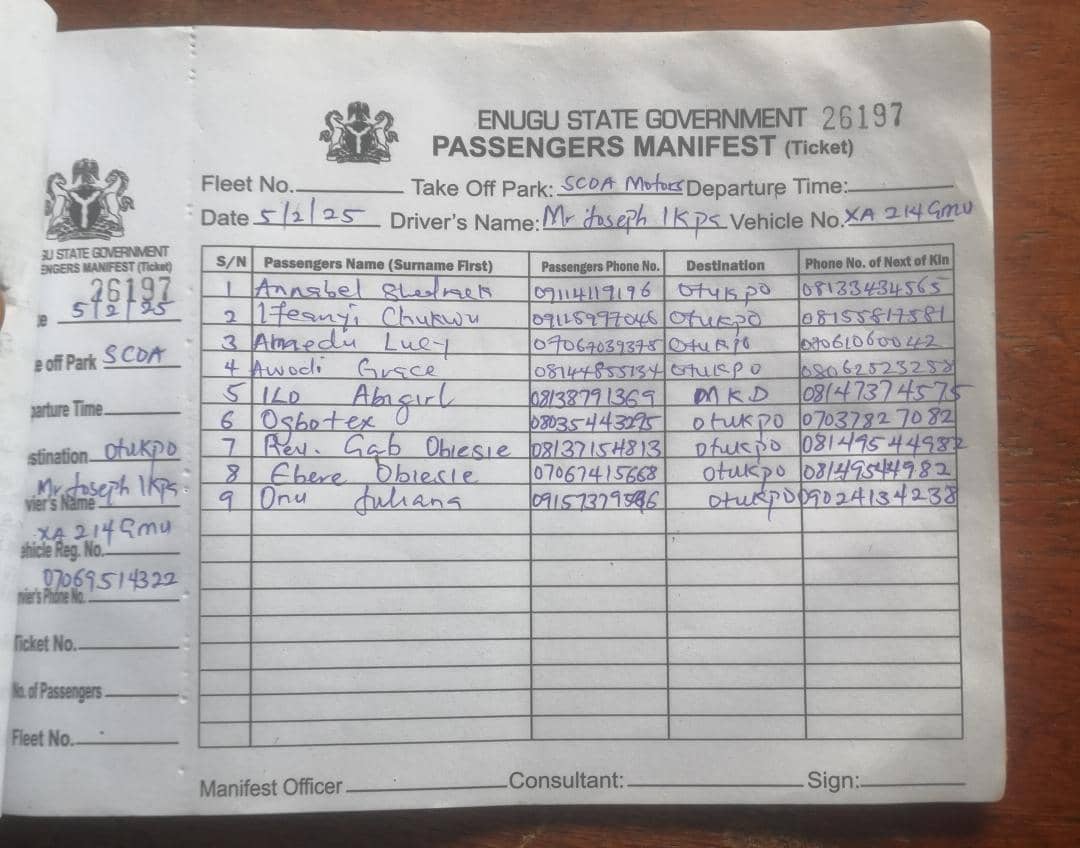 ENUGU STATE GOVERNMENT 26197
PASSENGERS MANIFEST (Ticket)
Fleet No. Take Off Park: SCOA Motors Departure Time:
Date 5/2/25 Driver's Name: Mr Joseph IKps Vehicle No. XA 214 GMU
S/N Passengers Name (Surname First) Passengers Phone No. Destination Phone No. of Next of Kin
1 Annabel 09114119196 Otukpo 08133434565
2 Ifeanyi Chukwu 09125977046 Otukpo 08155817581
3 Amaedu Lucy 07067039375 Otukpo 07061060042
4 Awodi Grace 08144855134 Otukpo 08062523258
5 ILO Abigirl 08138791369 MKD 08147374575
6 Ogbotex 08035443295 Otukpo 07037827082
7 Rev. Gab Obiesie 08137154813 Otukpo 08149544982
8 Ebere Obiesie 07067415668 Otukpo 08149544982
9 Onu Juliana Otukpo 09024134238
Manifest Officer Consultant: Sign:
GU STATE GOVERNMENT
ENGERS MANIFEST (Ticket)
26197
e 5/2/25
e off Park SCOA
parture Time
stination Otukpo
Mr Joseph IKps
vier's Name
XA 214 GMU
ehicle Reg. No.
07069514322
river's Phone No.
Ticket No.
No. of Passengers
Fleet No.